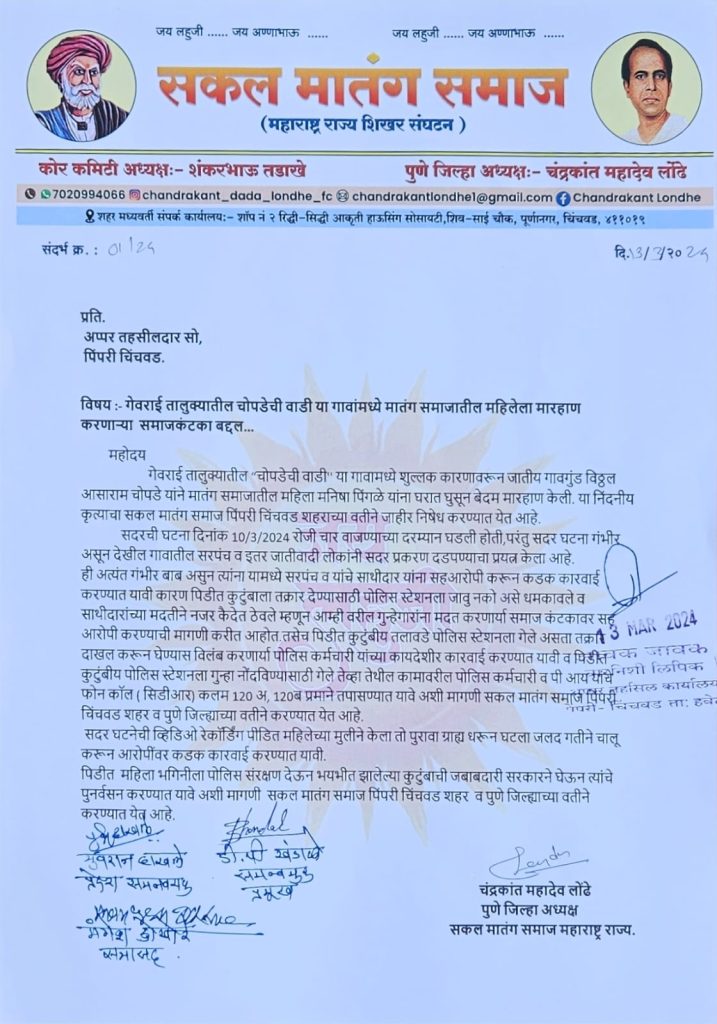 जय लहुजी ...... जय अण्णाभाऊ ...... जय लहुजी ...... जय अण्णाभाऊ ......
सकल मातंग समाज
(महाराष्ट्र राज्य शिखर संघटन )
कोर कमिटी अध्यक्ष:- शंकरभाऊ तडाखे पुणे जिल्हा अध्यक्ष:- चंद्रकांत महादेव लोंढे
7020994066 chandrakant_dada_londhe_fc chandrakantlondhe1@gmail.com Chandrakant Londhe
शहर मध्यवर्ती संपर्क कार्यालय:- शॉप नं २ रिद्धी-सिद्धी आकृती हाऊसिंग सोसायटी,शिव-साई चौक, पूर्णानगर, चिंचवड, ४११०१९
संदर्भ क्र. : 01/24 दि.13/3/२०24
प्रति.
अप्पर तहसीलदार सो,
पिंपरी चिंचवड.
विषय :- गेवराई तालुक्यातील चोपडेची वाडी या गावांमध्ये मातंग समाजातील महिलेला मारहाण
करणाऱ्या समाजकंटका बद्दल...
महोदय
गेवराई तालुक्यातील "चोपडेची वाडी" या गावामध्ये शुल्लक कारणावरून जातीय गावगुंड विठ्ठल
आसाराम चोपडे यांने मातंग समाजातील महिला मनिषा पिंगळे यांना घरात घुसून बेदम मारहाण केली. या निंदनीय
कृत्याचा सकल मातंग समाज पिंपरी चिंचवड शहराच्या वतीने जाहीर निषेध करण्यात येत आहे.
सदरची घटना दिनांक 10/3/2024 रोजी चार वाजण्याच्या दरम्यान घडली होती,परंतु सदर घटना गंभीर
असून देखील गावातील सरपंच व इतर जातीवादी लोकांनी सदर प्रकरण दडपण्याचा प्रयत्न केला आहे.
ही अत्यंत गंभीर बाब असुन त्यांना यामध्ये सरपंच व यांचे साथीदार यांना सहआरोपी करून कडक कारवाई
करण्यात यावी कारण पिडीत कुटुंबाला तक्रार देण्यासाठी पोलिस स्टेशनला जावु नको असे धमकावले व
साथीदारांच्या मदतीने नजर कैदेत ठेवले म्हणून आम्ही वरील गुन्हेगारांना मदत करणार्या समाज कंटकावर सह
आरोपी करण्याची मागणी करीत आहोत.तसेच पिडीत कुटुंबीय तलावडे पोलिस स्टेशनला गेले असता तक्रार
दाखल करून घेण्यास विलंब करणार्या पोलिस कर्मचारी यांच्या कायदेशीर कारवाई करण्यात यावी व पिडीत
कुटुंबीय पोलिस स्टेशनला गुन्हा नोंदविण्यासाठी गेले तेव्हा तेथील कामावरील पोलिस कर्मचारी व पी आय यांचे
फोन कॉल ( सिडीआर) कलम 120 अ, 120ब प्रमाने तपासण्यात यावे अशी मागणी सकल मातंग समाज पिंपरी
चिंचवड शहर व पुणे जिल्ह्याच्या वतीने करण्यात येत आहे.
सदर घटनेची व्हिडिओ रेकॉर्डिंग पीडित महिलेच्या मुलीने केला तो पुरावा ग्राह्य धरून घटला जलद गतीने चालू
करून आरोपींवर कडक कारवाई करण्यात यावी.
पिडीत महिला भगिनीला पोलिस संरक्षण देऊन भयभीत झालेल्या कुटुंबाची जबाबदारी सरकारने घेऊन त्यांचे
पुनर्वसन करण्यात यावे अशी मागणी सकल मातंग समाज पिंपरी चिंचवड शहर व पुणे जिल्ह्याच्या वतीने
करण्यात येत आहे.
13 MAR 2024
जावक
लिपिक
तहसिल कार्यालय
चिंचवड ता: हवे
डी.पी खंडाळे
समन्वयक
प्रमुख
चंद्रकांत महादेव लोंढे
पुणे जिल्हा अध्यक्ष
सकल मातंग समाज महाराष्ट्र राज्य.